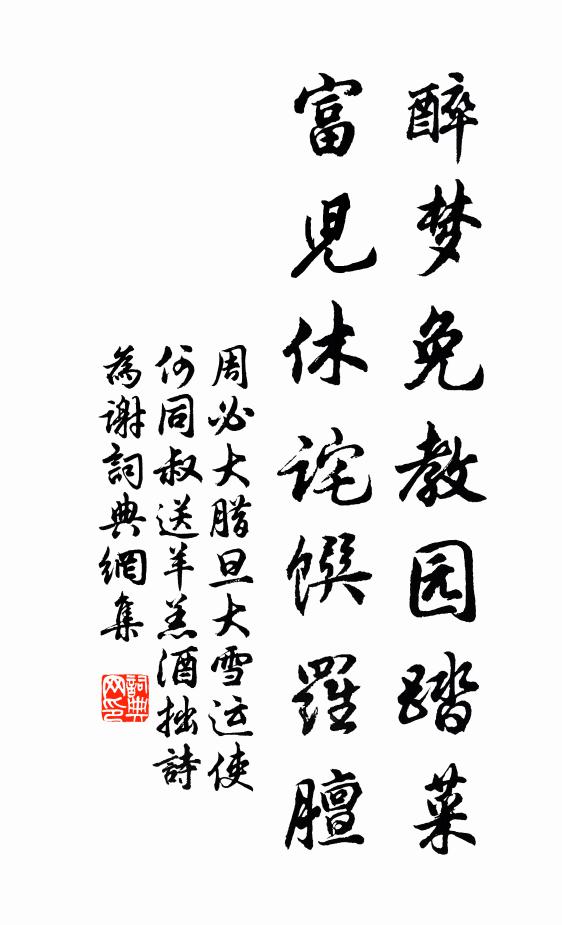 醉梦免教园踏菜
富児休诧馔羅膻
周必大腊旦大雪运使
何同叔送羊羔酒拙詩
為谢詞典網集
詞典
网印